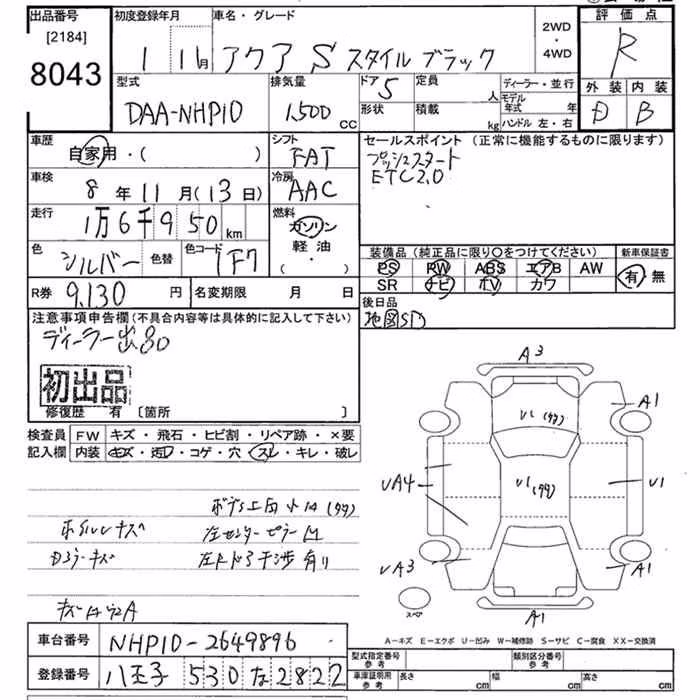 出品番号 初度登録年月 車名・グレード 2WD・4WD 評価点
[2184]
8043
1 11月 アクア S スタイルブラック R
外装 内装
D B
型式 排気量 ドア 5 定員 人 ディーラー・並行
DAA-NHP10 1,500 CC 形状 積載 kg モデル年式 年
ハンドル 左・右
車歴 シフト セールスポイント (正常に機能するものに限ります)
自家用・( ) FAT プッシュスタート
ETC2.0
車検 冷房
8年11月(13日) AAC
走行 燃料
1万6千950km ガソリン
軽油・
( )
色 シルバー 色替 色コード 1F7
装備品 (純正品に限り○をつけてください) 新車保証書
PS PW ABS エアB AW 有・無
SR ナビ TV カワ
R券 9,130円 名変期限 月 日
後日品
地図SD
注意事項申告欄(不具合内容等は具体的に記入して下さい)
ディーラー出品
初出品
修復歴 有 [箇所 ]
検査員 FW キズ・飛石・ヒビ割・リペア跡・×要
記入欄 内装 キズ・汚レ・コゲ・穴・スレ・キレ・破レ
A3
A1
U1
U1
UA4
U1
UA3
A1
A1
スペア
ホイルキズ 左センターピラー
左ドア干渉有り
A-キズ E-エクボ U-凹み W-補修跡 S-サビ C-腐食 XX-交換済
車台番号 NHP10-2649896
登録番号 八王子 530 な 2822
型式指定番号 参考 類別区分番号 参考
車庫証明用 参考 長さ cm 幅 cm 高さ cm